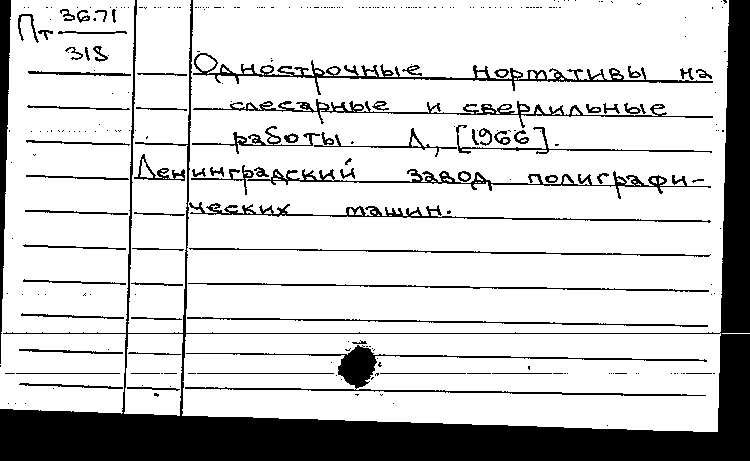 Пт 36.71
318
Однострочные нормативы на
слесарные и сверлильные
работы. Л., [1966].
Ленинградский завод полиграфи-
ческих машин.